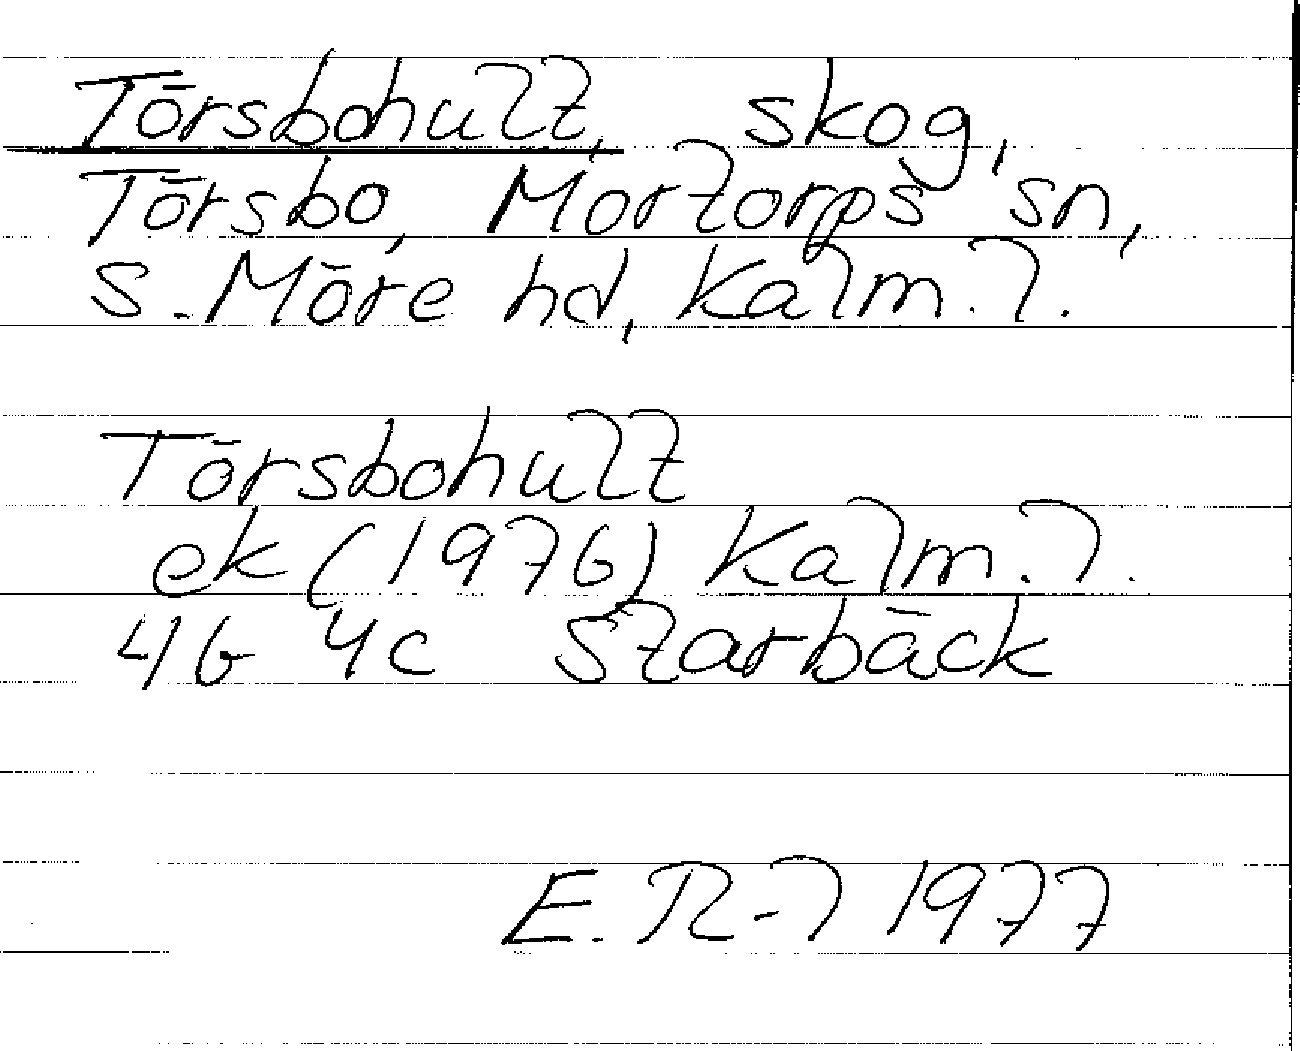 Törsbohult, skog,
Törsbo, Mortorps sn,
S. Möre hd, Kalm. l.
Törsbohult
ek (1976) Kalm. l.
4G 4c Starbäck
E. R-l 1977